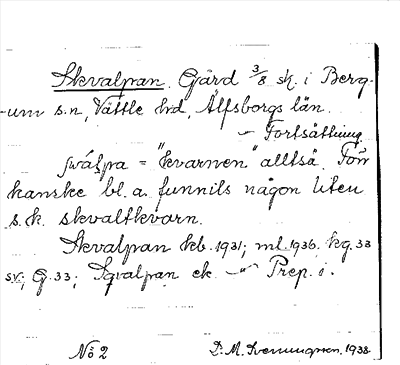 Skvalpan. Gård 3/8 sk. i Berg-
-um s.n, Vättle hrd, Älfsborgs län.
— Fortsättning
swálpa = "kvarnen" alltså. Förr
kanske bl.a. funnits någon liten
s.k. skvaltkvarn.
Skvalpan kb. 1931; ml. 1936. kg. 33
sv; G. 33; Sqvalpan ek. —"— Prep. i.
No 2 D. M. Svenungsson. 1938